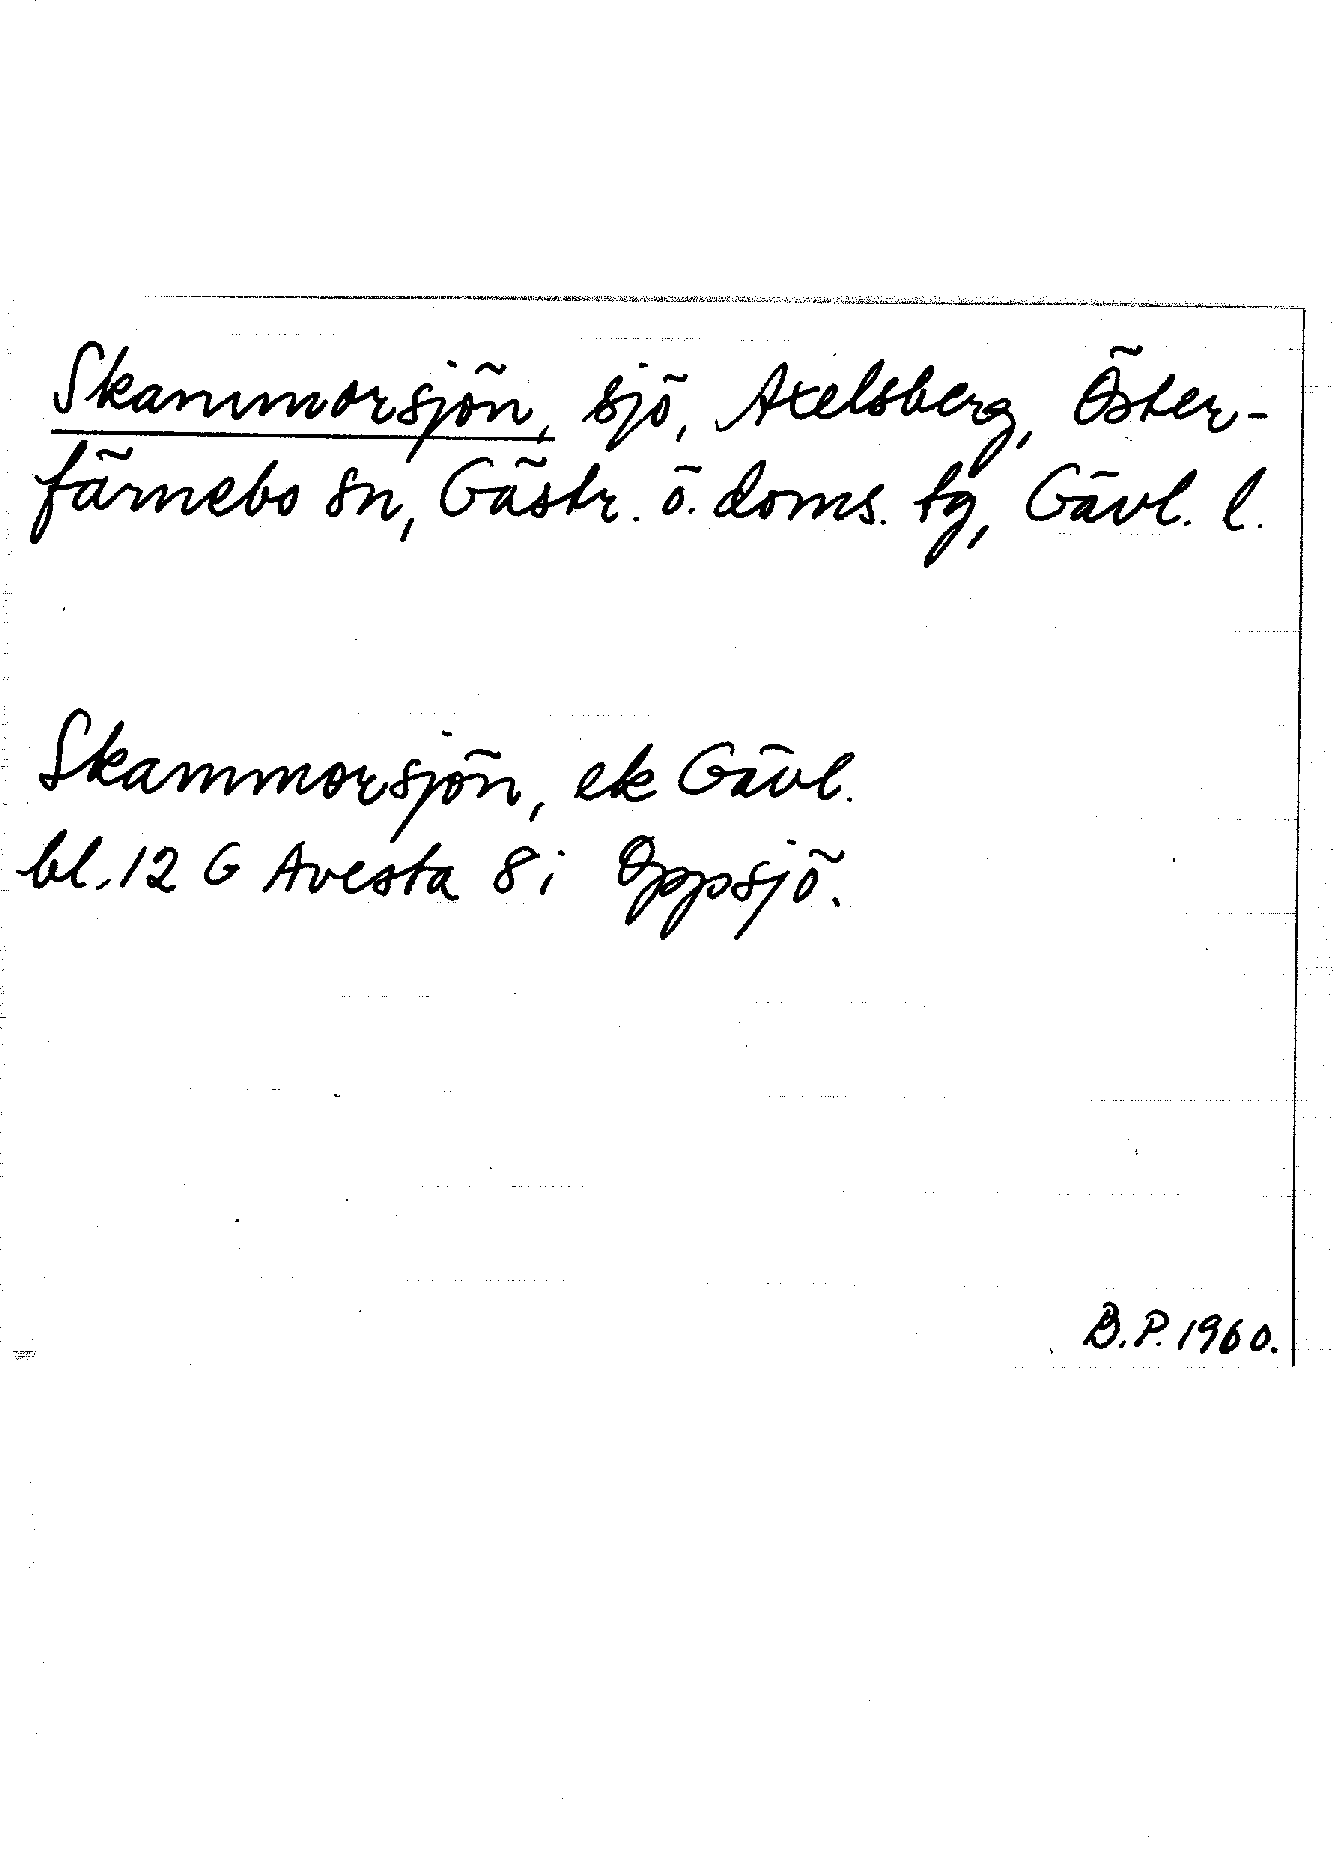 Skammorsjön, sjö, Axelsberg, Öster-
färnebo sn, Gästr. ö. doms. tg, Gävl. l.
Skammorsjön, ek Gävl.
bl. 12 G Avesta 8 i Oppsjö.
B.P. 1960.